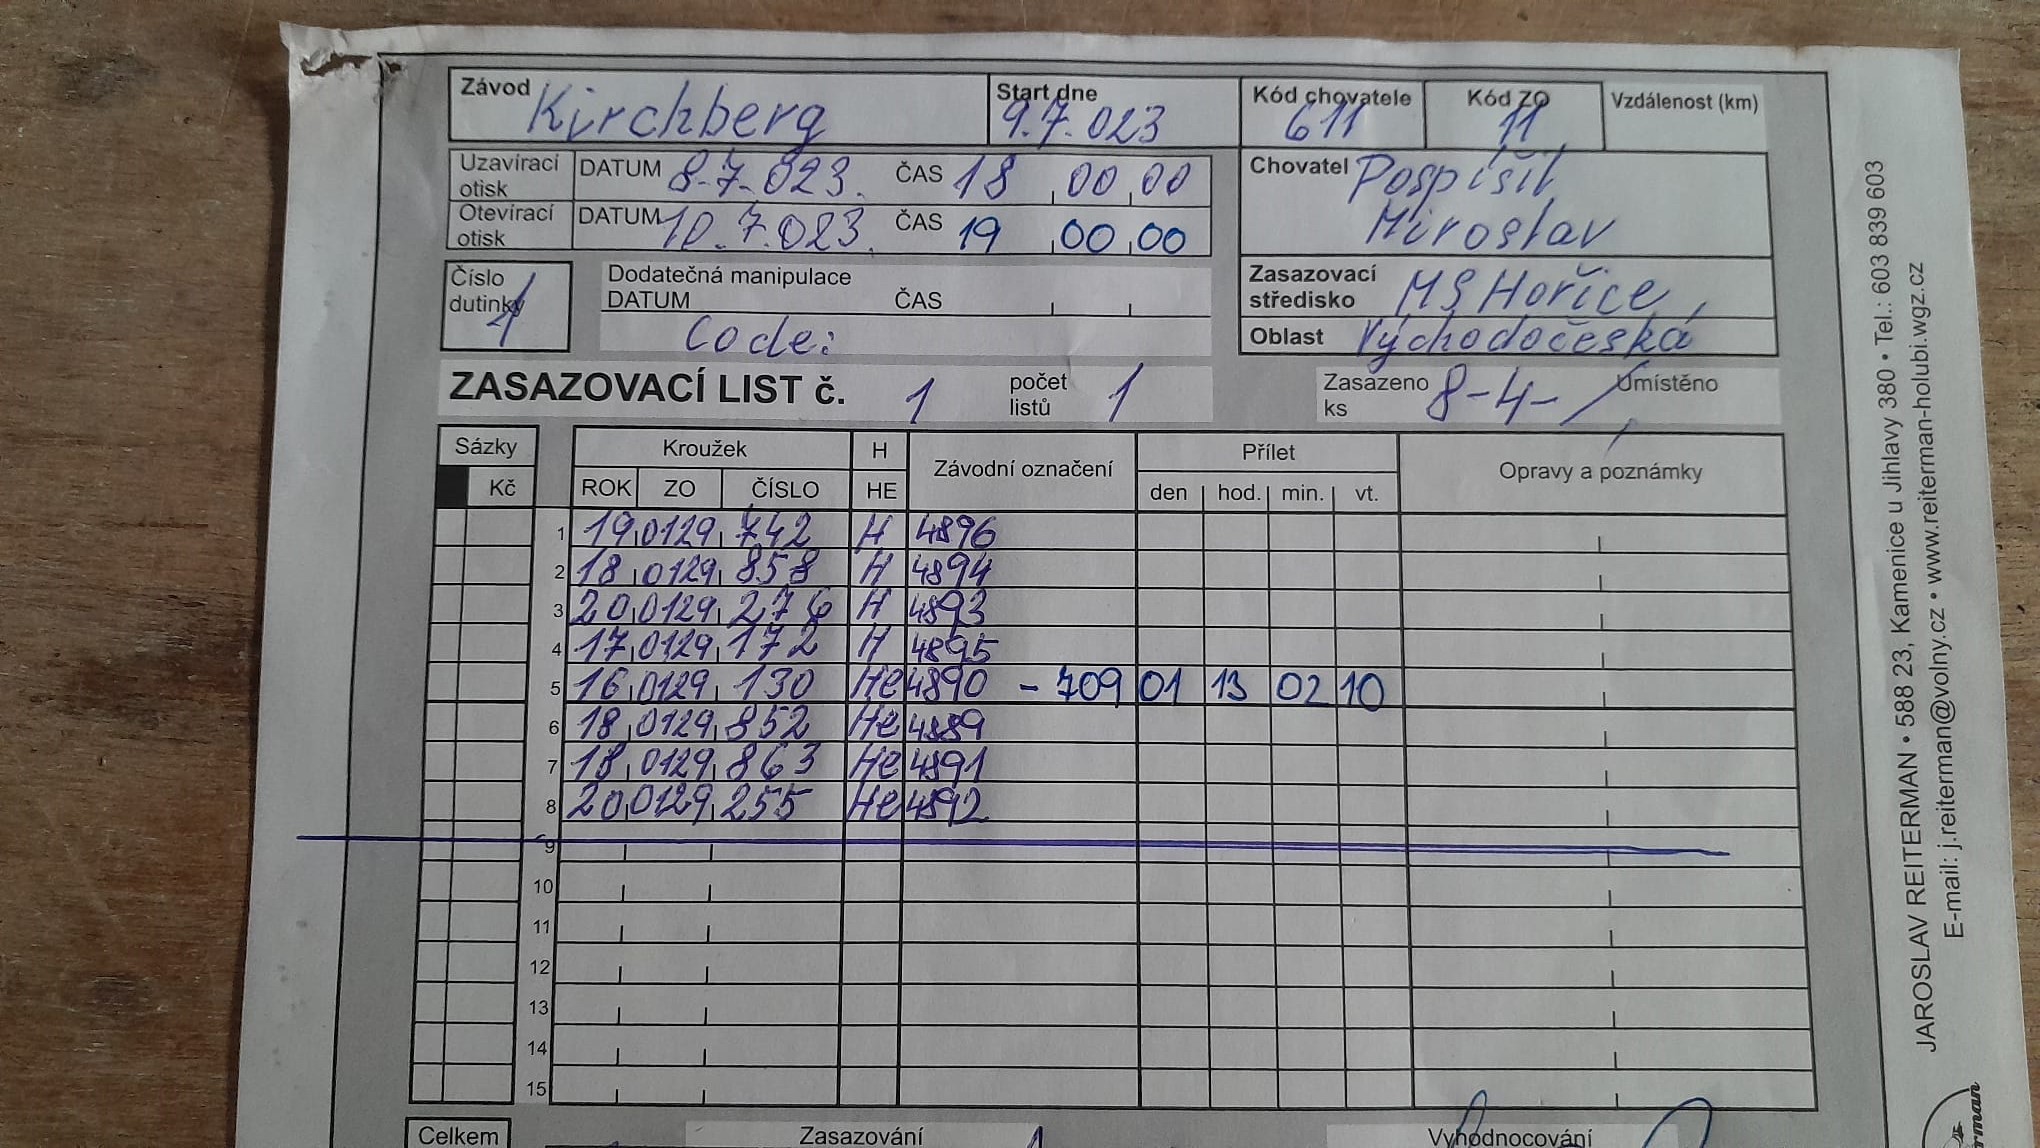 Závod Kirchberg Start dne 9.7.023 Kód chovatele 611 Kód ZO 11 Vzdálenost (km)
Uzavírací otisk DATUM 8.7.023. ČAS 18 00 00
Otevírací otisk DATUM 10.7.023. ČAS 19 00 00
Chovatel Pospíšil
Miroslav
Číslo dutinky 1
Dodatečná manipulace
DATUM ČAS
Code:
Zasazovací středisko MS Hořice,
Oblast Východočeská
ZASAZOVACÍ LIST č. 1 počet listů 1
Zasazeno ks 8-4-/ Umístěno
Sázky Kroužek H Závodní označení Přílet Opravy a poznámky
Kč ROK ZO ČÍSLO HE den hod. min. vt.
1 19 0129 742 H 4896
2 18 0129 858 H 4894
3 20 0129 276 H 4893
4 17 0129 172 H 4895
5 16 0129 130 He 4890 - 709 01 13 02 10
6 18 0129 852 He 4889
7 18 0129 863 He 4891
8 20 0129 255 He 4892
9
10
11
12
13
14
15
Celkem Zasazování Vyhodnocování
JAROSLAV REITERMAN • 588 23, Kamenice u Jihlavy 380 • Tel.: 603 839 603
E-mail: j.reiterman@volny.cz • www.reiterman-holubi.wgz.cz